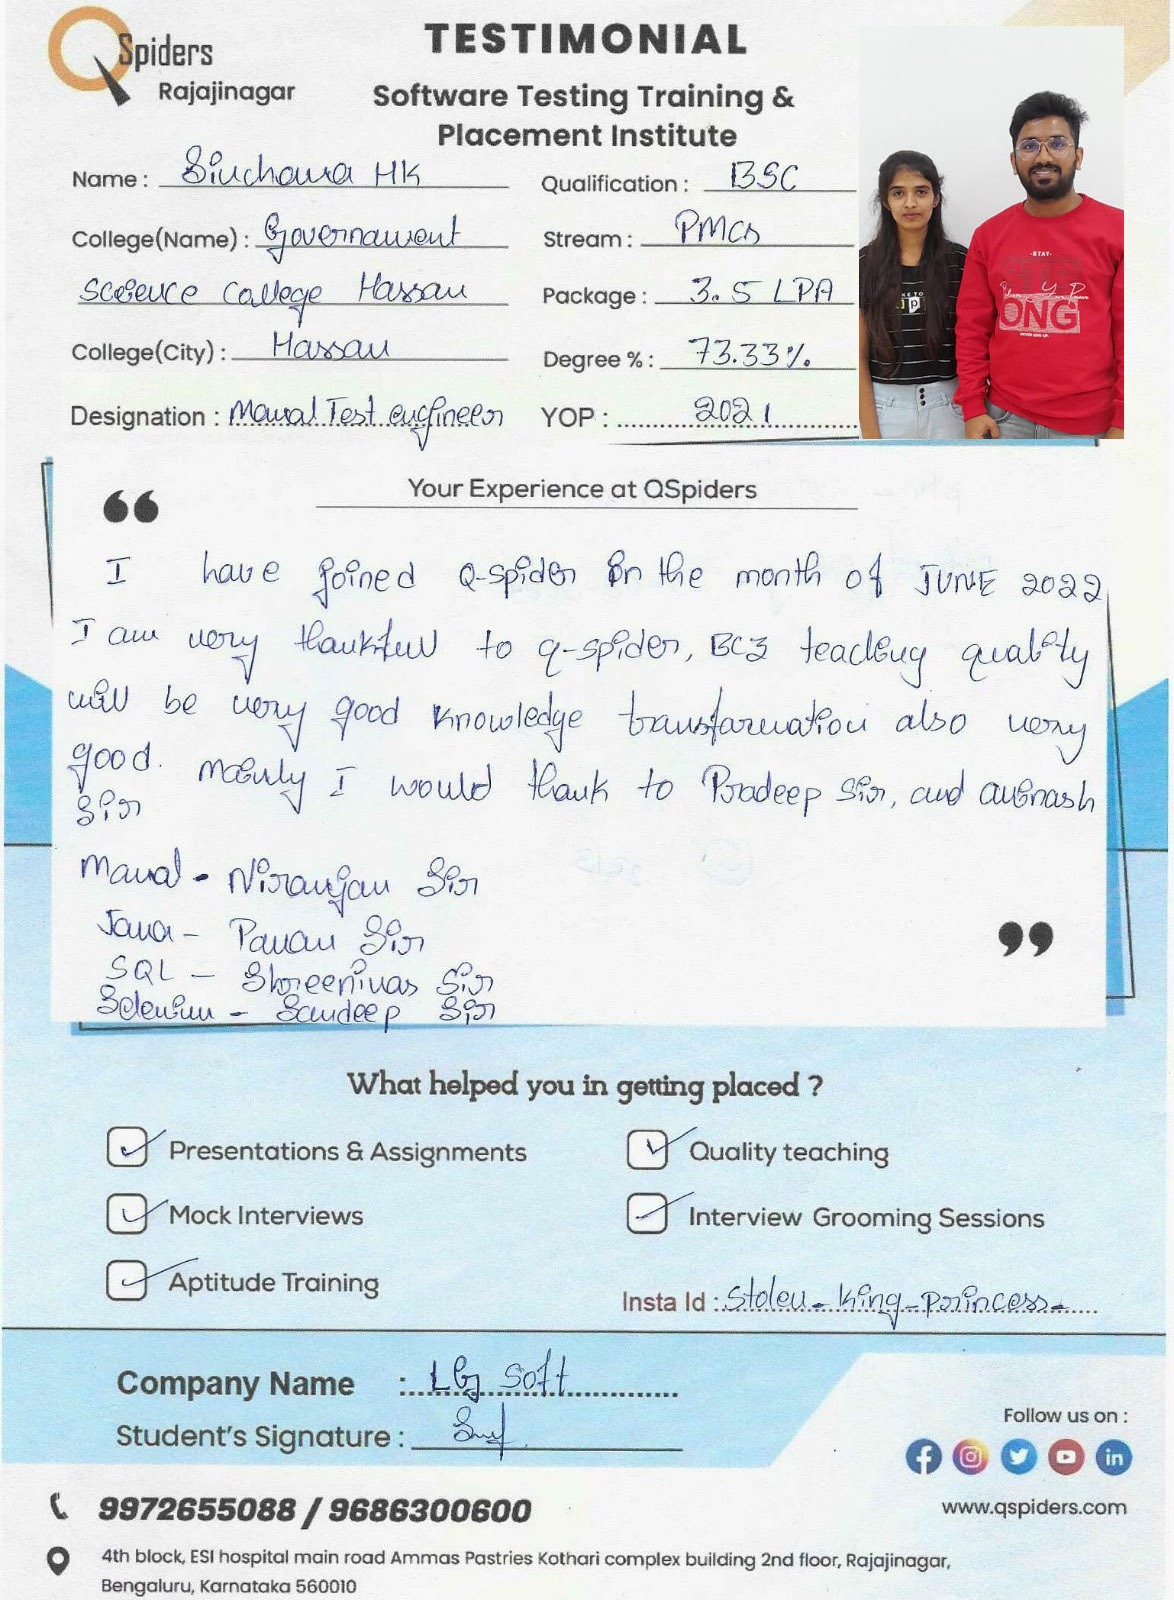 QSpiders
Rajajinagar
TESTIMONIAL
Software Testing Training &
Placement Institute
Name : Sinchana HK
Qualification : BSC
College(Name) : Governament
Stream : PMCs
Science College Hassan
Package : 3.5 LPA
College(City) : Hassan
Degree % : 73.33%
Designation : Manual Test engineer
YOP : 2021
-STAY-
ONG
NEVER GIVE UP.
Your Experience at QSpiders
I have joined Q-spider in the month of JUNE 2022
I am very thankfull to q-spider, BCZ teaching quality
will be very good knowledge transformation also very
good. Mainly I would thank to Pradeep Sir, and avinash
Sir
Manual - Niranjan Sir
Java - Pavan Sir
SQL - Shreenivas Sir
Selenium - Sandeep Sir
What helped you in getting placed ?
Presentations & Assignments
Quality teaching
Mock Interviews
Interview Grooming Sessions
Aptitude Training
Insta Id : Stolen_king_princess_
Company Name : LG Soft
Student's Signature :
Follow us on :
www.qspiders.com
9972655088 / 9686300600
4th block, ESI hospital main road Ammas Pastries Kothari complex building 2nd floor, Rajajinagar,
Bengaluru, Karnataka 560010